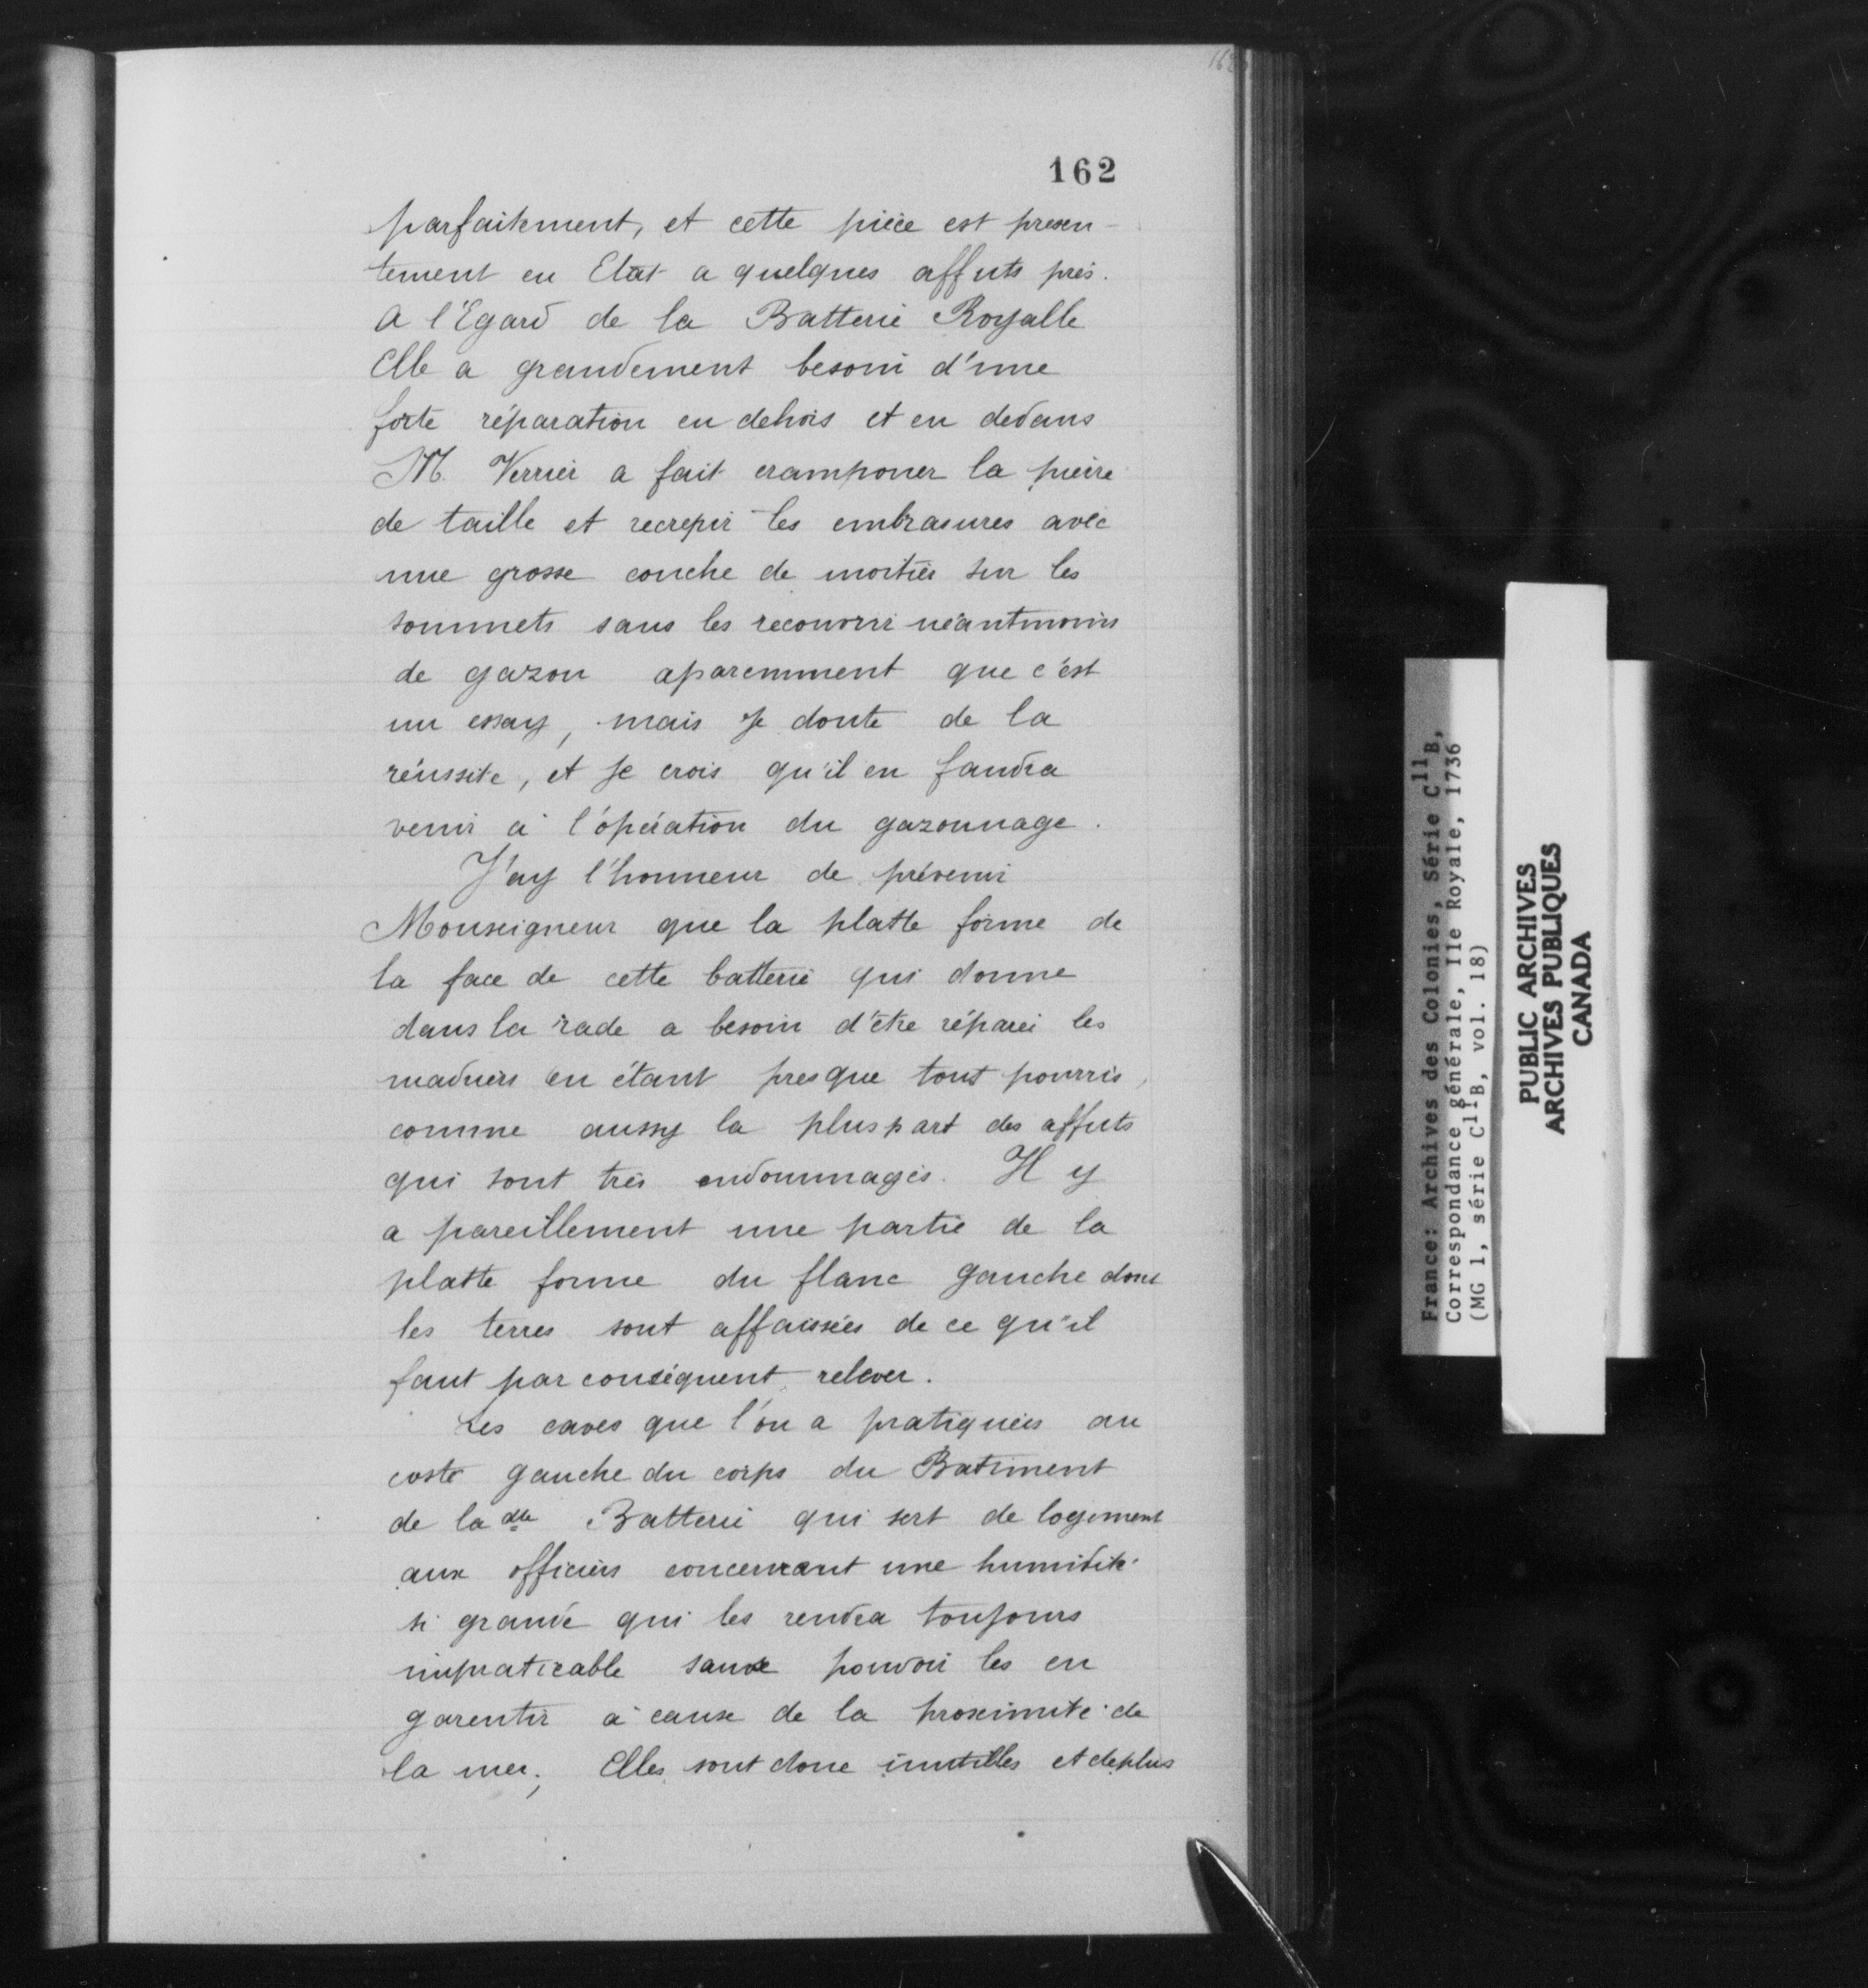 162
parfaitement, et cette pièce est presen-
tement en Etat a quelques affuts près.
A l'Egard de la Batterie Royalle
Elle a grandement besoin d'une
forte réparation en dehors et en dedans
M. Verrier a fait cramponer la pierre
de taille et recrepir les embrasures avec
une grosse couche de mortier sur les
sommets sans les recouvrir néantmoins
de gazon aparemment que c'est
un essay, mais Je doute de la
réussite, et Je crois qu'il en faudra
venir à l'opération du gazonnage.
J'ay l'honneur de prévenir
Monseigneur que la platte forme de
la face de cette batterie qui donne
dans la rade a besoin d'être réparée les
madriers en étant presque tout pourris,
comme aussy la pluspart des affuts
qui sont très endommagés. Il y
a pareillement une partie de la
platte forme du flanc gauche dont
les terres sont affaissées de ce qu'il
faut par conséquent relever.
Les caves que l'on a pratiquées au
costé gauche du corps du Batiment
de la dte Batterie qui sert de logement
aux officiers concervant une humidité
si grande qui les rendra toujours
impraticable sans pouvoir les en
garentir à cause de la proximité de
la mer; Elles sont donc inutilles et deplus
France: Archives des Colonies, Série C11B,
Correspondance générale, Ile Royale, 1736
(MG 1, série C11B, vol. 18)
PUBLIC ARCHIVES
ARCHIVES PUBLIQUES
CANADA